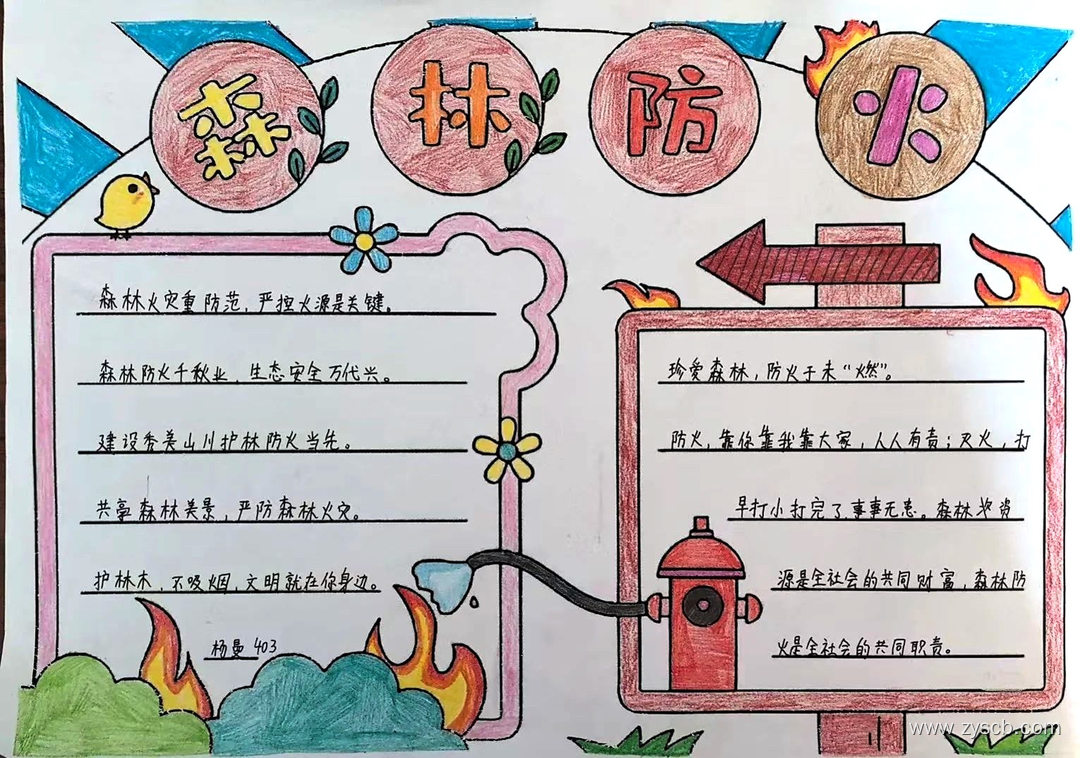 森林防火
森林火灾重防范，严控火源是关键。
森林防火千秋业，生态安全万代兴。
建设秀美山川护林防火当先。
共享森林美景，严防森林火灾。
护林木，不吸烟，文明就在你身边。
杨曼 403
珍爱森林，防火于未“燃”。
防火，靠你靠我靠大家，人人有责；灭火，打
早打小打完了事事无患。森林资
源是全社会的共同财富，森林防
火是全社会的共同职责。
www.zyscb.com